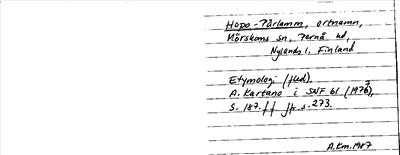 Hopo-Pärlamm, ortnamn,
Mörskoms sn, Pernå hd,
Nylands l. Finland
Etymologi (fled).
A. Kartano i SNF 61 (1976),
S. 187.ff jfr. s. 273.
A.Km.1987